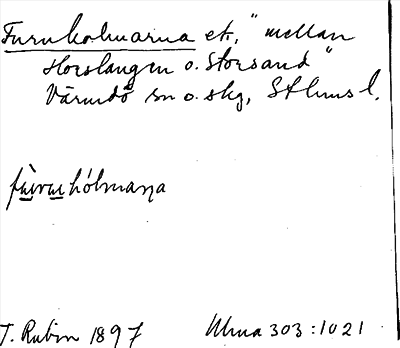 Furuholmarna etc., "mellan
Horslangen o. Storsand"
Värmdö sn o. skg, Sthlms l.
fùruhólmaṇa
T. Rubin 1897 Ulma 303:1021